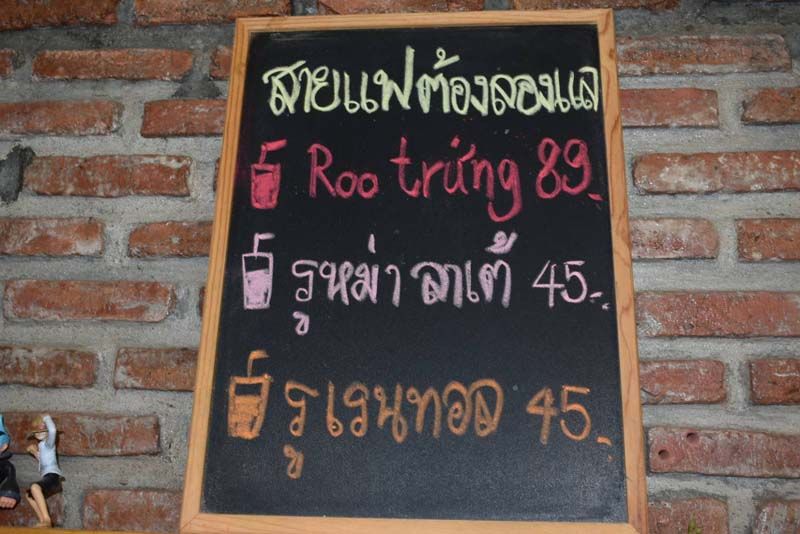 สายแฟต้องลองแล
Roo trứng 89.-
รูหม่า ลาเต้ 45.-
รู เรนทอล 45.-